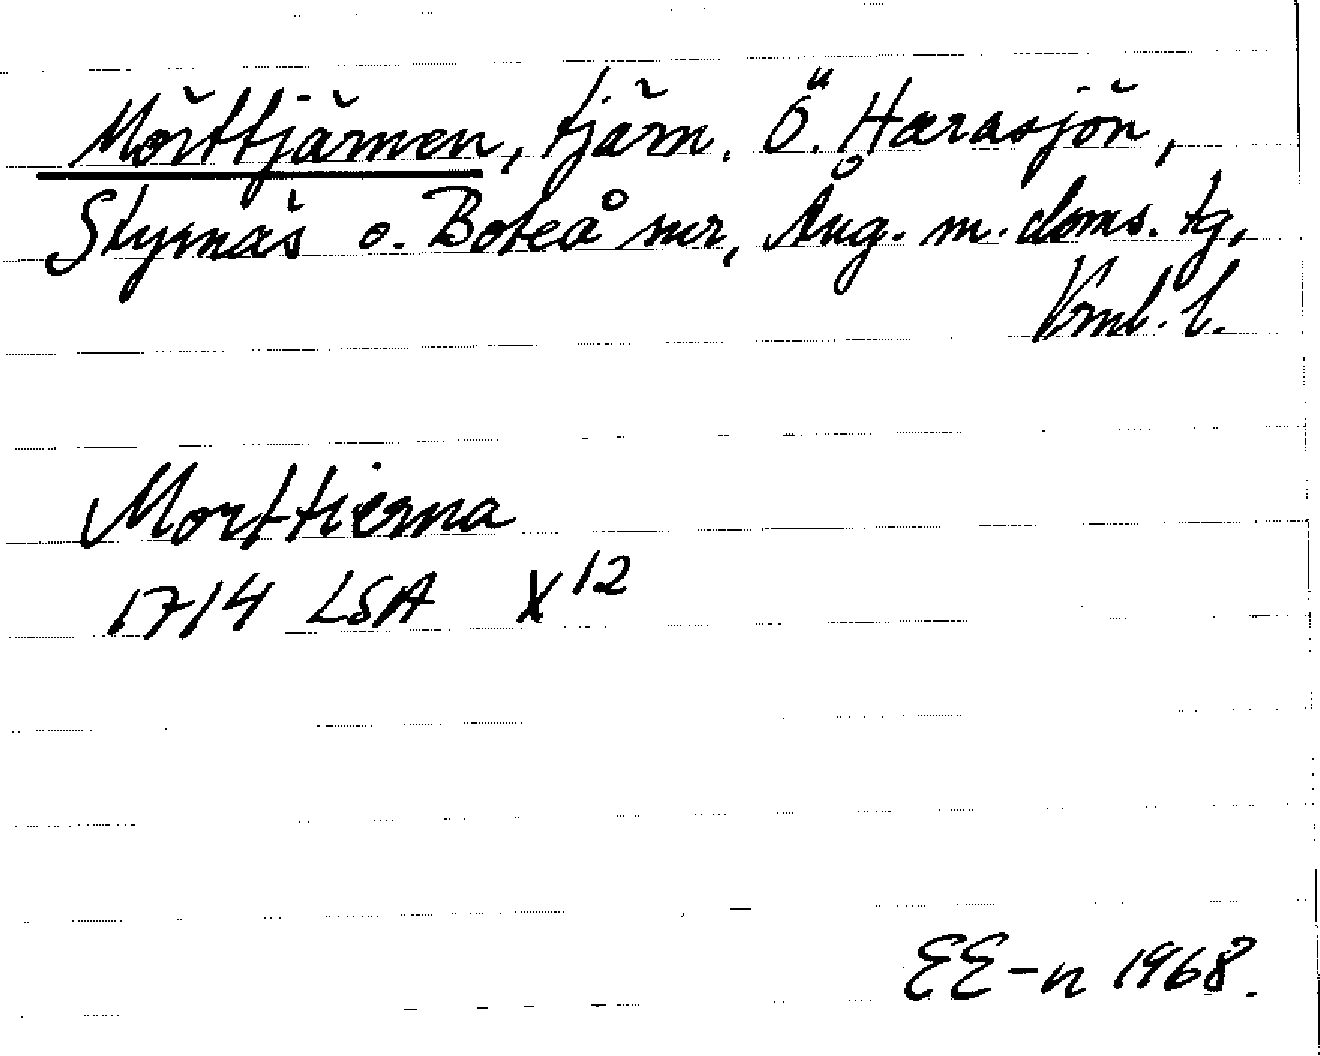 Mörttjärnen, tjärn. Ö. Harasjön,
Styrnäs o. Boteå snr, Ång. m. doms. tg,
Vrml. l.
Morttierna
1714 LSA X 12
EE-n 1968.